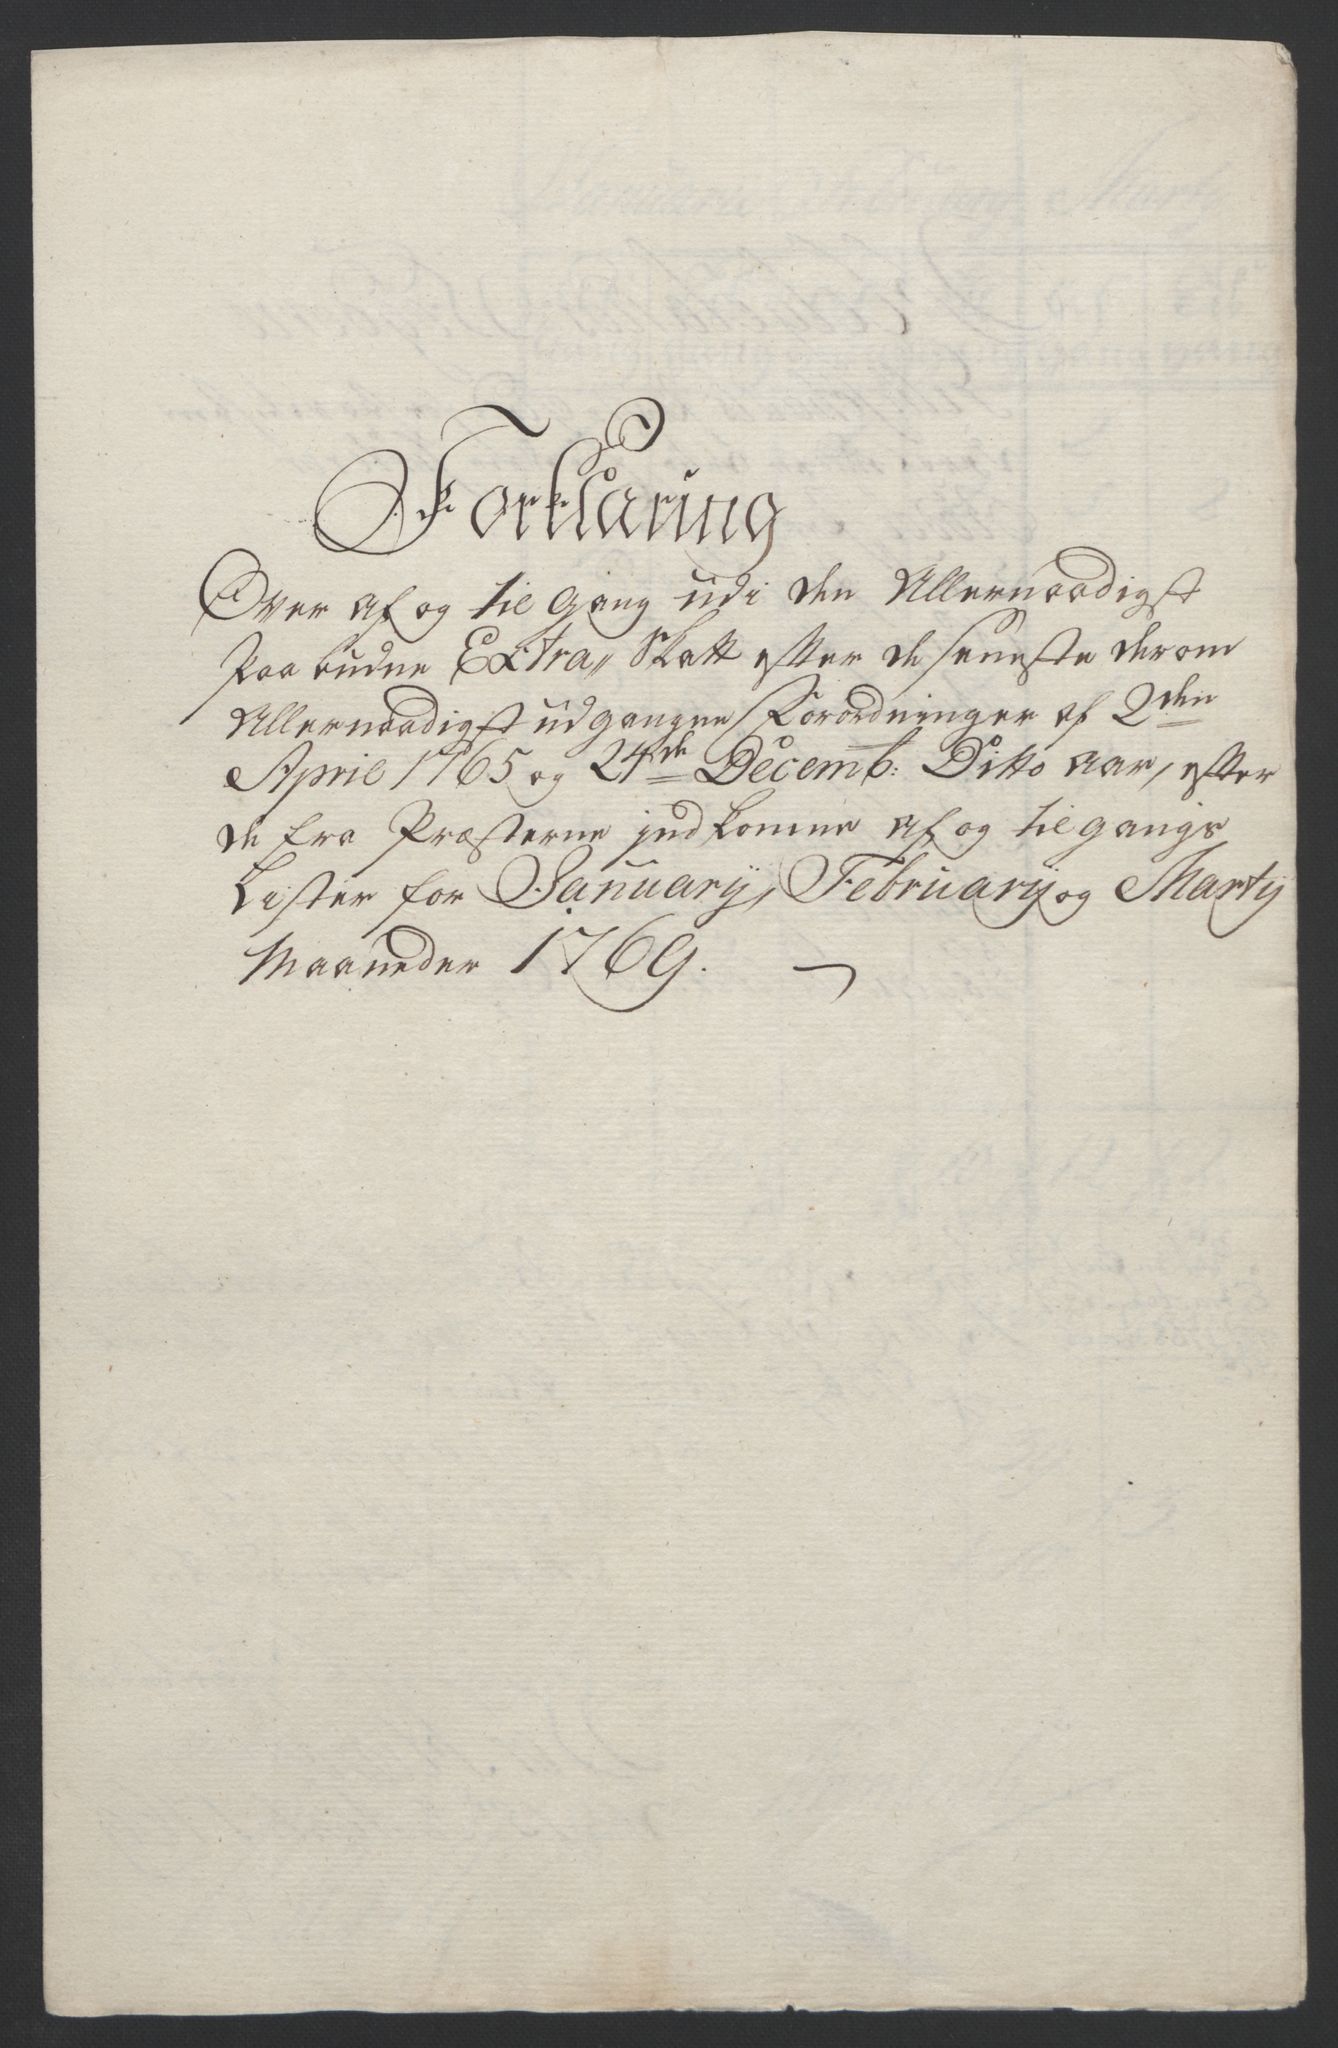 Forklaring
Over af og til gang udi den Allernaadigst
paabudne Extra, Skatt efter de seneste derom
Allernaadigst udgangne Forordninger af 2den
April 1765 og 24de Decemb: Ditto aar, efter
de fra Præsterne indkomne af og tilgangs
Lister for Januarij, Februarij og Martij
Maaneder 1769.